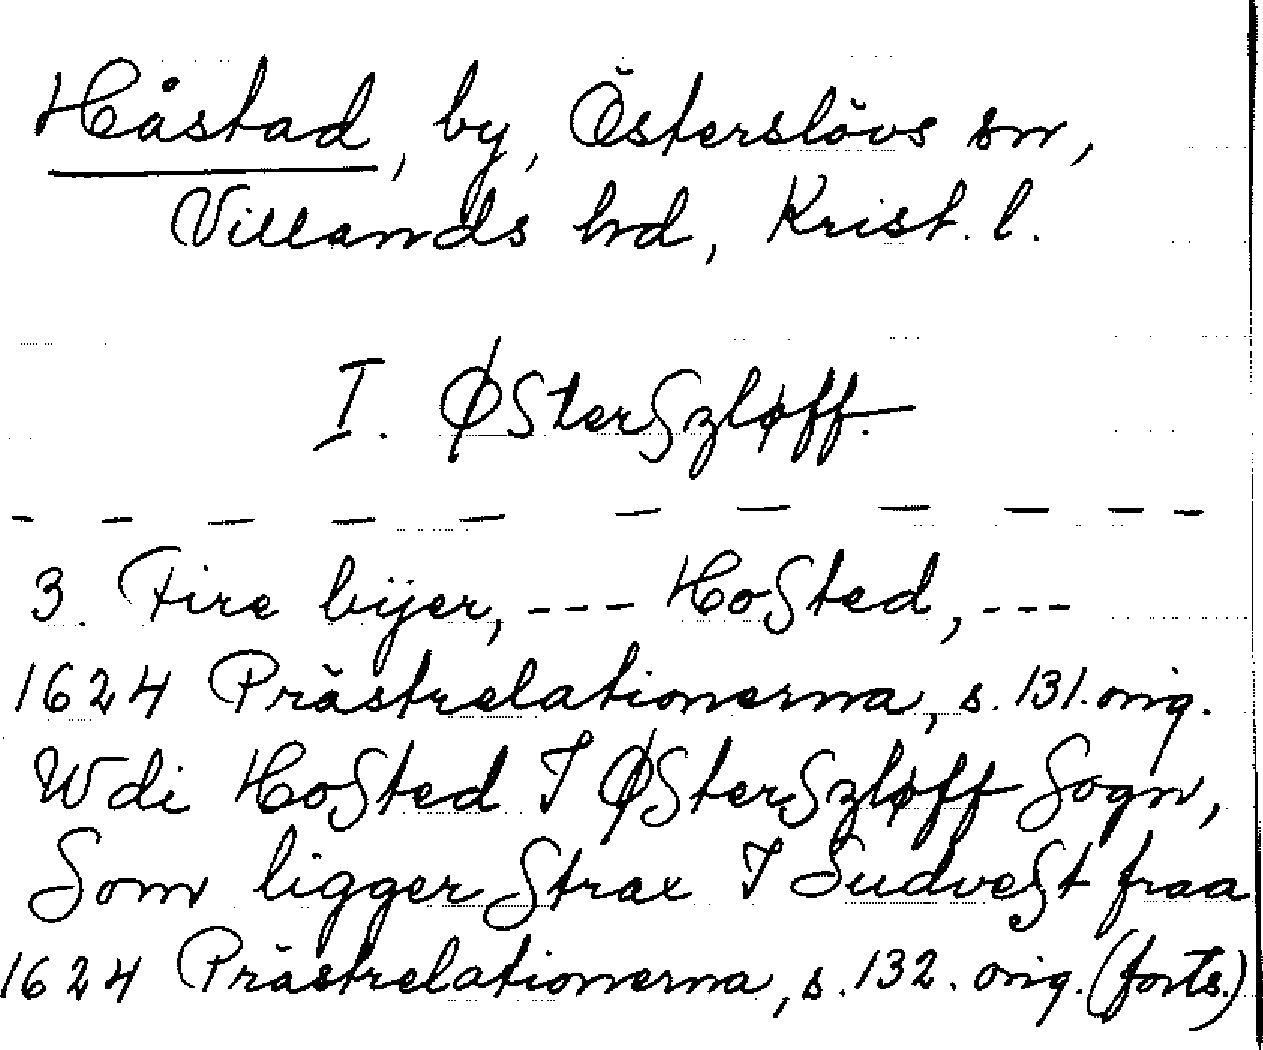 Håstad, by, Österslövs sn,
Villands hd, Krist. l.
I. ØSterSzløff.
– – – – – – – – – – –
3. Fire bÿer, --- HoSted, ---
1624 Prästrelationerna, s. 131. orig.
Wdi HoSted I ØSterSzløff Sogn,
Som ligger Strax I SudveSt fraa
1624 Prästrelationerna, s. 132. orig. (forts.)